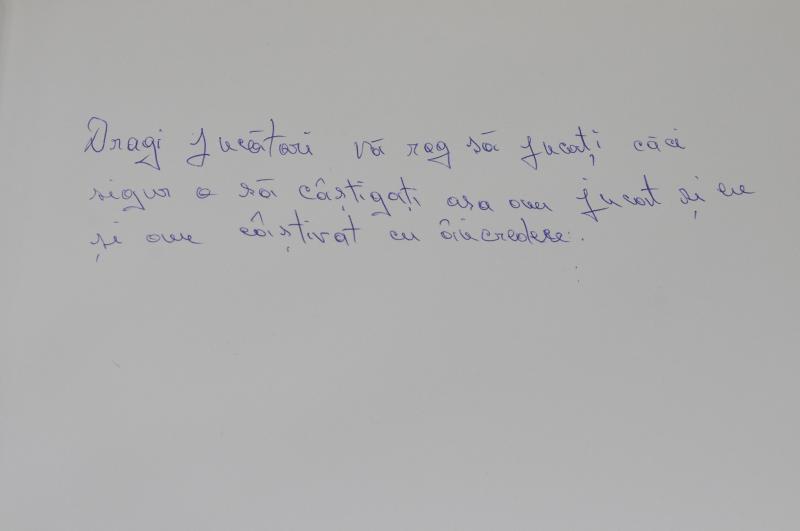 Dragi jucători vă rog să jucați căci
sigur o să câștigați asa am jucat și eu
și am câiștivat cu âincredere.